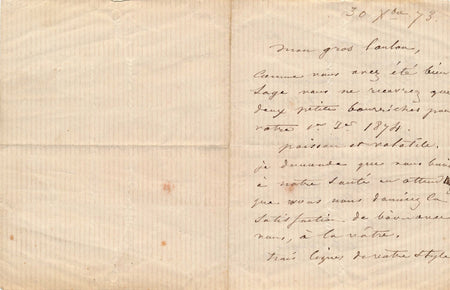 30 Xbre 73.
mon gros loulou,
comme vous avez été bien
sage vous ne recevrez que
deux petites bourriches pour
votre 1er Jer 1874.
poisson et volatile.
je demande que vous buviez
à notre santé en attendant
que vous nous donniez la
satisfaction de boire avec
vous, à la vôtre.
trois lignes de votre style